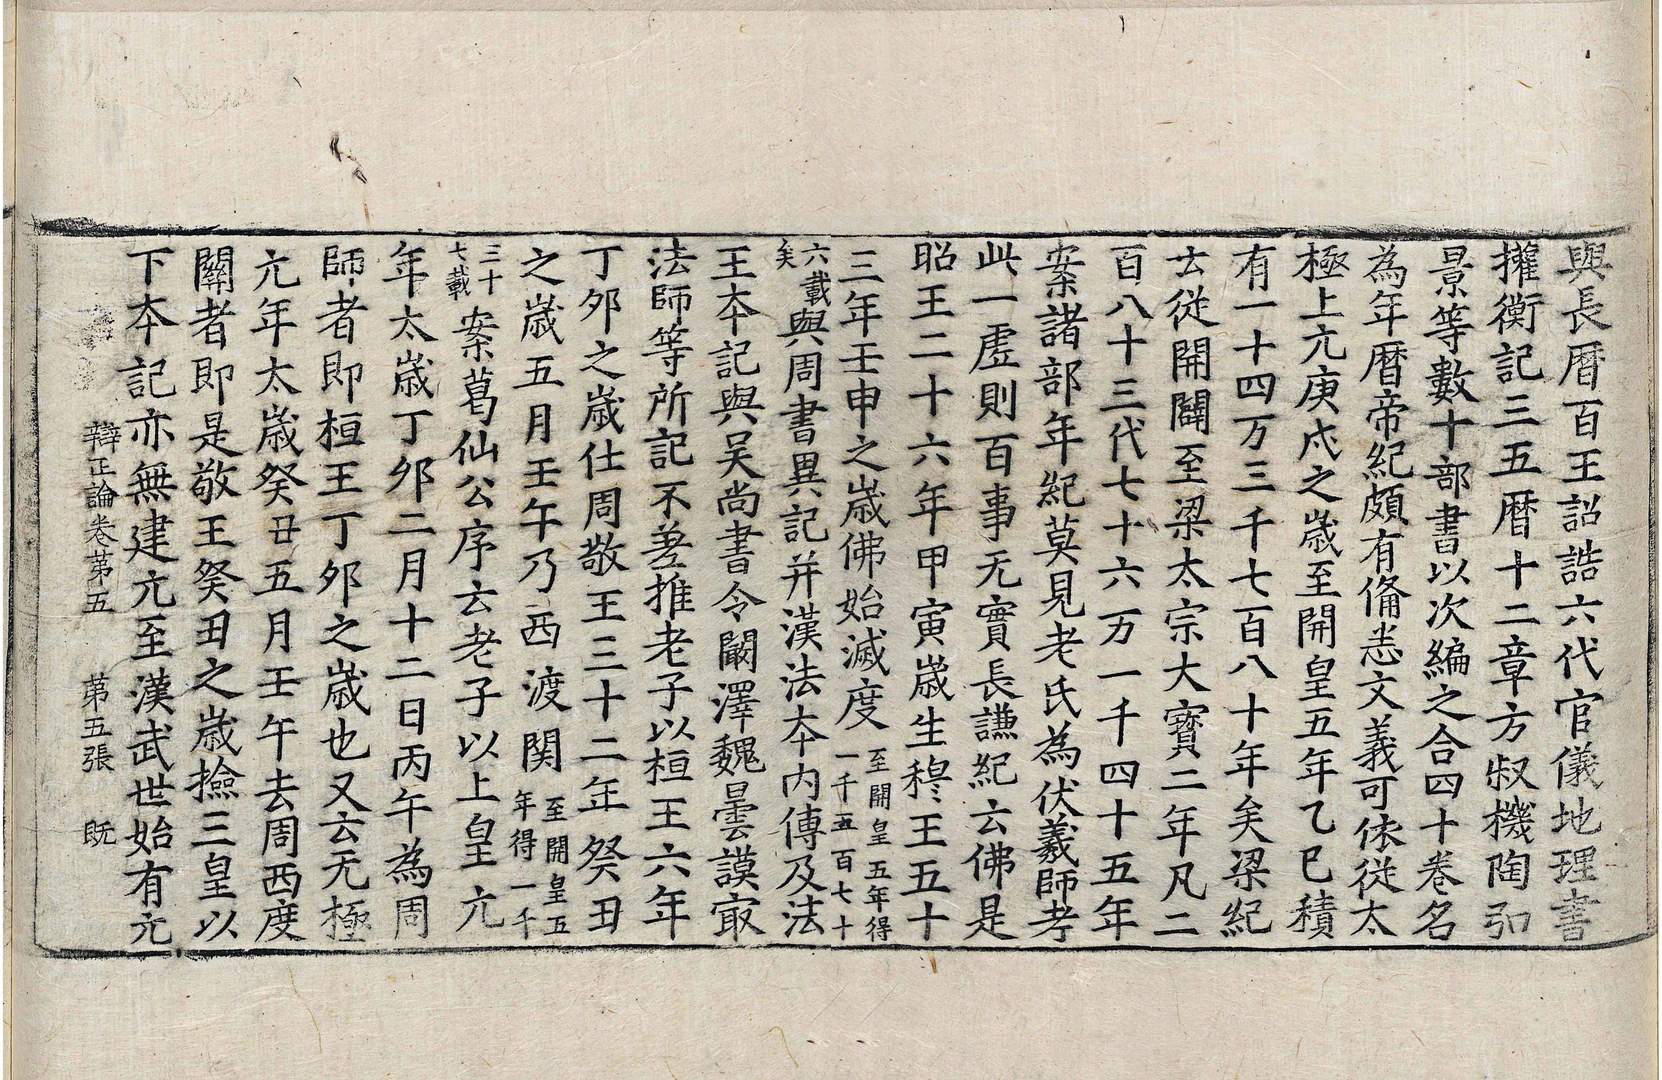 與長曆百王詔誥六代官儀地理書
攉衡記三五曆十二章方叔機陶弘
景等數十部書以次編之合四十卷名
為年曆帝紀頗有俻恙文義可依從太
極上亢庚戍之歳至開皇五年乙巳積
有一十四万三千七百八十年矣梁紀
云從開闢至梁太宗大寶二年凡二
百八十三代七十六万一千四十五年
案諸部年紀莫見老氏為伏羲師考
此一虛則百事无實長謙紀云佛是
昭王二十六年甲寅歳生穆王五十
三年壬申之歳佛始滅度至開皇五年得一千五百七十
六載矣與周書異記并漢法夲内傳及法
王夲記與吴尚書令闞澤魏曇謨㝡
法師等所記不差推老子以桓王六年
丁夘之歳仕周敬王三十二年癸丑
之歳五月壬午乃西渡関至開皇五年得一千
三十七載案葛仙公序云老子以上皇亢
年太歳丁夘二月十二日丙午為周
師者即桓王丁夘之歳也又云无極
亢年太歳癸丑五月壬午去周西度
關者即是敬王癸丑之歳撿三皇以
下夲記亦無建亢至漢武世始有亢
辯正論卷第五　第五張　既